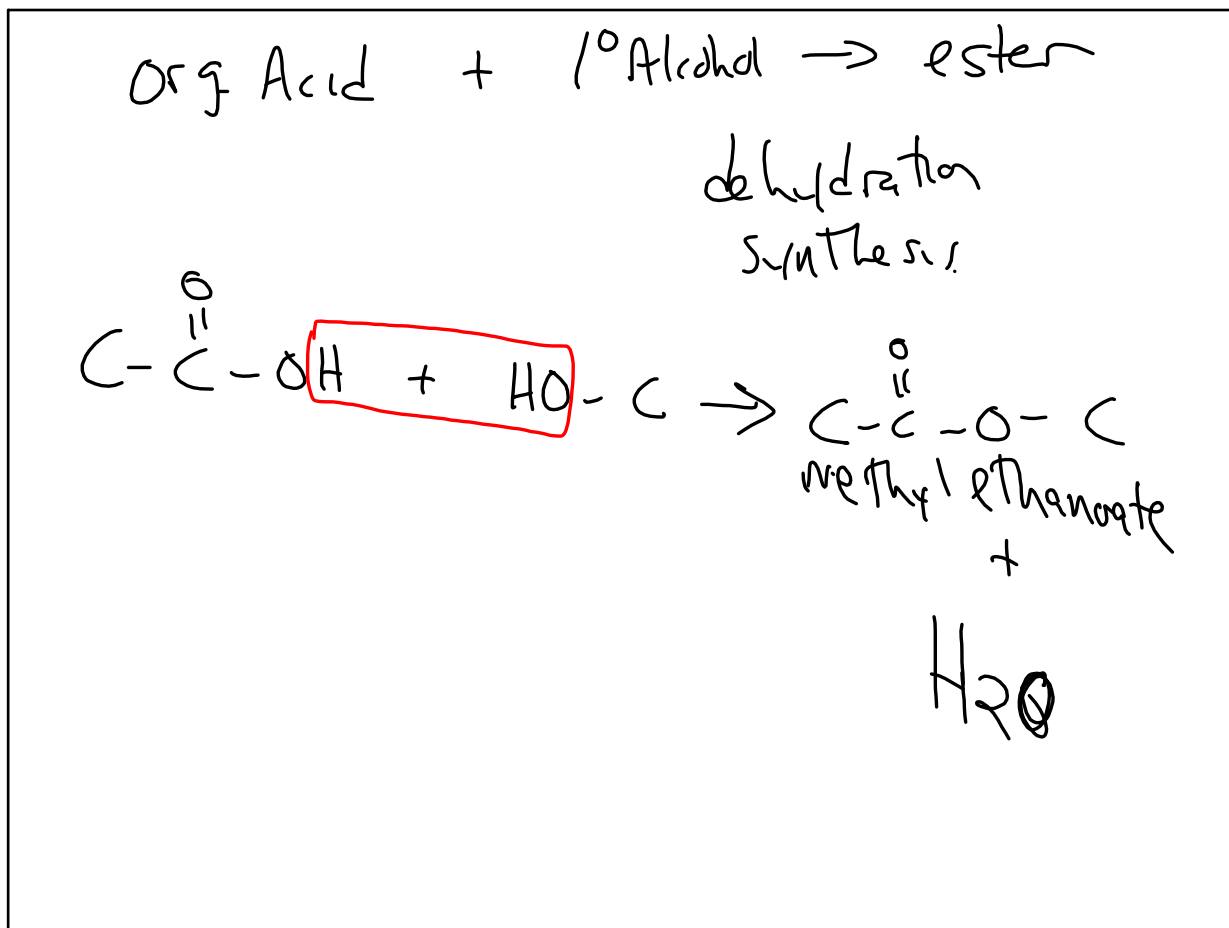 Org Acid + 1° Alcohol → ester
dehydration
synthesis
O
||
C - C - OH + HO - C →
O
||
C - C - O - C
methyl ethanoate
+
H2O